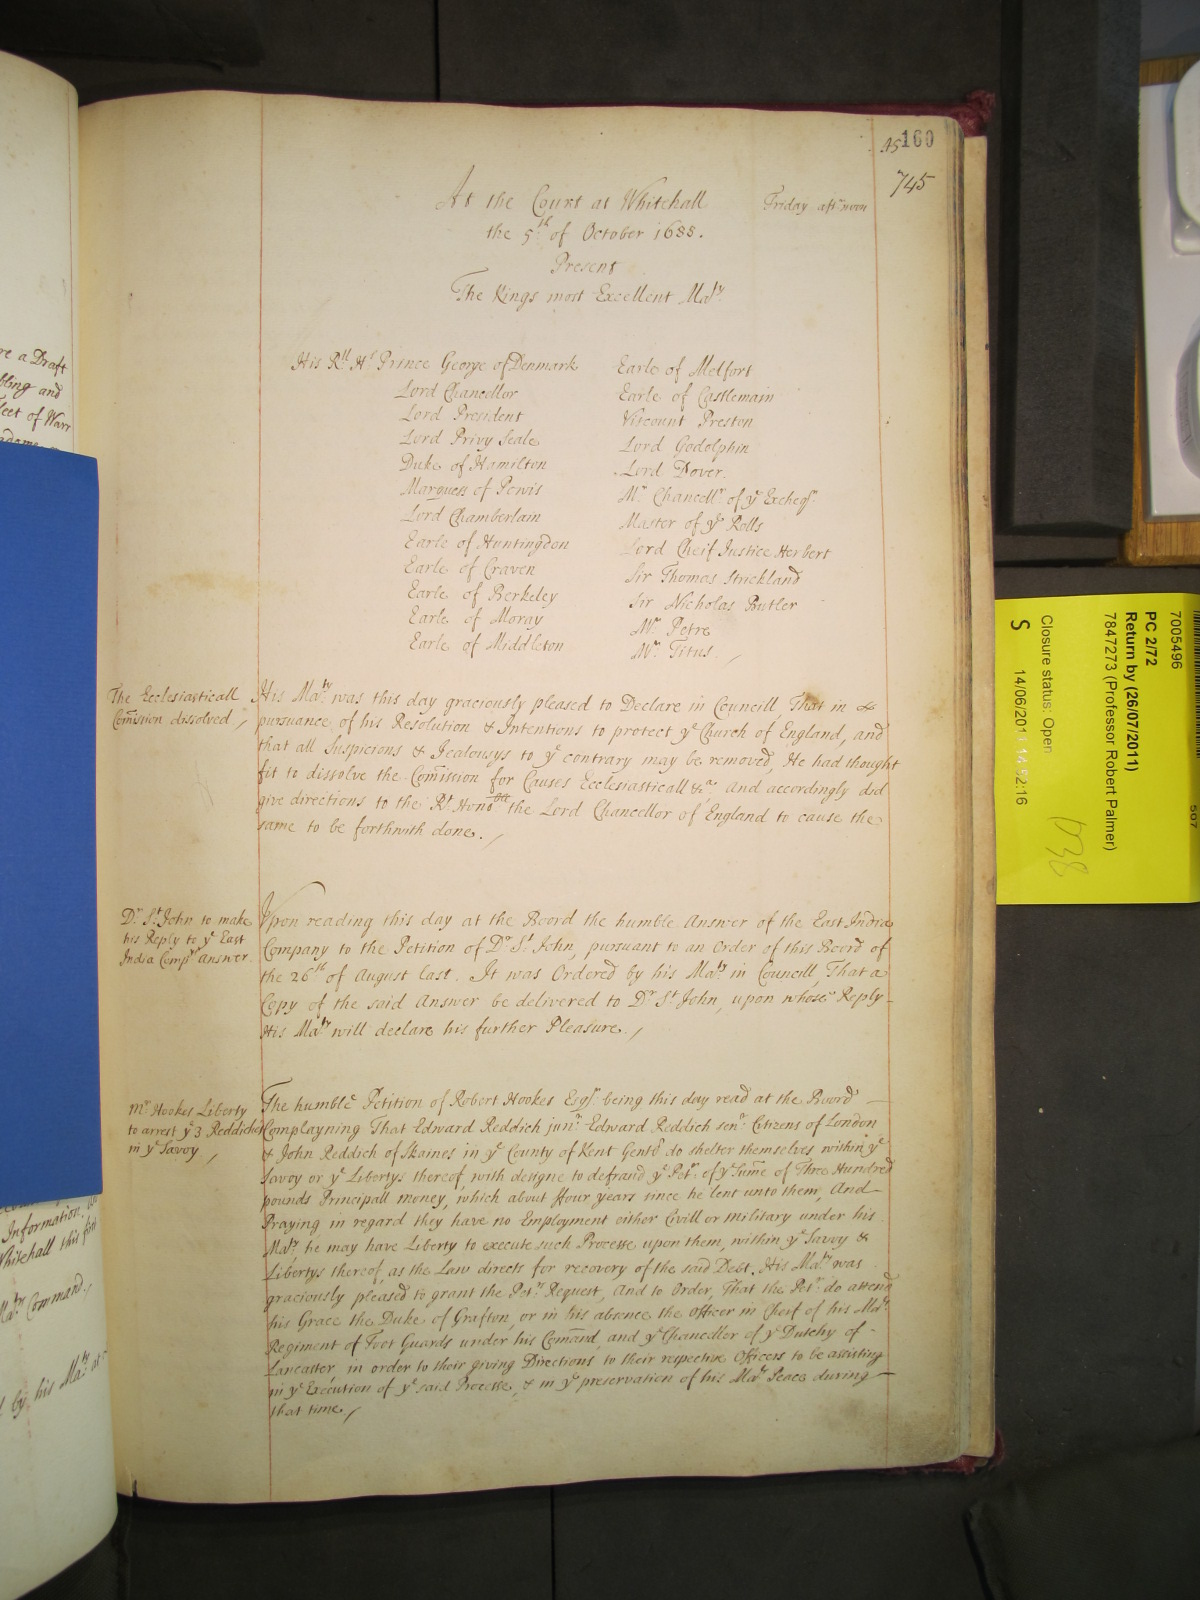 160
745
At the Court at Whitehall
Friday aft:noon
the 5th of October 1688.
Present
The Kings most Excellent Maty
His Rll Hs Prince George of Denmark
Lord Chancellor
Lord President
Lord Privy Seale
Duke of Hamilton
Marquess of Powis
Lord Chamberlain
Earle of Huntingdon
Earle of Craven
Earle of Berkeley
Earle of Moray
Earle of Middleton
Earle of Melfort
Earle of Castlemain
Viscount Preston
Lord Godolphin
Lord Dover
Mr Chancellr of ye Excheqr
Master of ye Rolls
Lord Cheif Justice Herbert
Sir Thomas Strickland
Sir Nicholas Butler
Mr Petre
Mr Titus
The Ecclesiasticall
Com̄ission dissolved
His Maty was this day graciously pleased to Declare in Councill, That in
pursuance of his Resolution & Intentions to protect ye Church of England, and
that all Suspicions & Jealousys to ye contrary may be removed, He had thought
fit to dissolve the Com̄ission for Causes Ecclesiasticall &ca, And accordingly did
give directions to the Rt Honoble the Lord Chancellor of England to cause the
same to be forthwith done.
Dr St John to make
his Reply to ye East
India Compys Answer
Upon reading this day at the Boord the humble Answer of the East India
Company to the Petition of Dr St John, pursuant to an Order of this Boord of
the 26th of August last. It was Ordered by his Maty in Councill, That a
Copy of the said Answer be delivered to Dr St John, upon whose Reply
His Maty will declare his further Pleasure.
Mr Hookes Liberty
to arrest ye 3 Reddiches
in ye Savoy
The humble Petition of Robert Hookes Esqr being this day read at the Boord
Complayning That Edward Reddich junr Edward Reddich senr Citizens of London
& John Reddich of Staines in ye County of Kent Gent do shelter themselves within ye
Savoy or ye Libertys thereof, with designe to defraud ye Petr of ye Sum̄e of Three Hundred
pounds Principall money, which about ffour years since he lent unto them, And
Praying in regard they have no Employment either Civill or Military under his
Maty, he may have Liberty to execute such Processe upon them, within ye Savoy &
Libertys thereof, as the Law directs for recovery of the said Debt. His Maty was
graciously pleased to grant the Petrs Request, And to Order, That the Petr do attend
his Grace the Duke of Grafton, or in his absence the Officer in Cheif of his Maty
Regiment of Foot Guards under his Com̄and, and ye Chancellor of ye Dutchy of
Lancaster, in order to their giving Directions to their respective Officers to be assisting
in ye Execution of ye said Processe, & in ye preservation of his Matys Peace during
that time.
re a Draft
bling and
fleet of Warr
Information
Whitehall this
Matys Command
by his Maty at
7005496
PC 2/72
Return by (26/07/2011)
7847273 (Professor Robert Palmer)
Closure status: Open
S